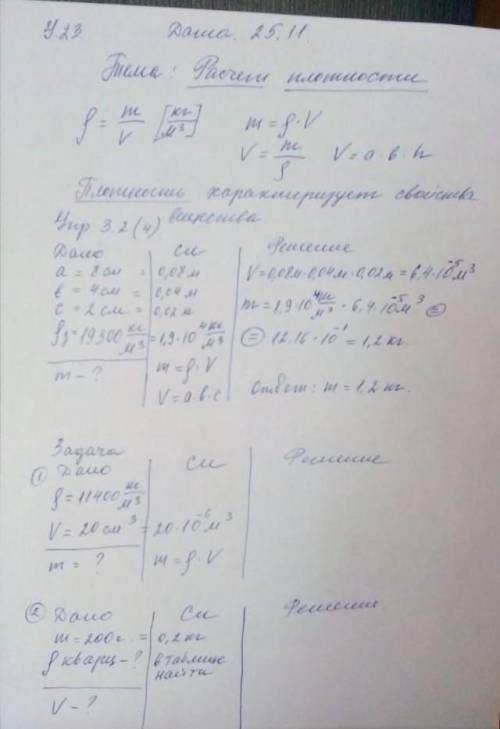 У.23 Дата. 25.11.
Тема: Расчет плотности
ρ = m/V [кг/м³] m = ρ·V
V = m/ρ V = a·b·h
Плотность характеризует свойства
Упр 3.2(4) вещества
Дано СИ Решение
a = 8 см = 0,08 м V = 0,08м·0,04м·0,02м = 6,4·10⁻⁵м³
b = 4 см = 0,04 м m = 1,9·10⁴ кг/м³ · 6,4·10⁻⁵ м³ =
c = 2 см = 0,02 м
ρз = 19300 кг/м³ = 1,9·10⁴ кг/м³ = 12,16·10⁻¹ = 1,2 кг.
m - ? m = ρ·V
V = a·b·c Ответ: m = 1,2 кг.
Задача
① Дано СИ Решение
ρ = 11400 кг/м³
V = 20 см³ = 20·10⁻⁶ м³
m = ? m = ρ·V
② Дано СИ Решение
m = 200г. = 0,2 кг
ρ кварц - ? в таблице
найти
V - ?